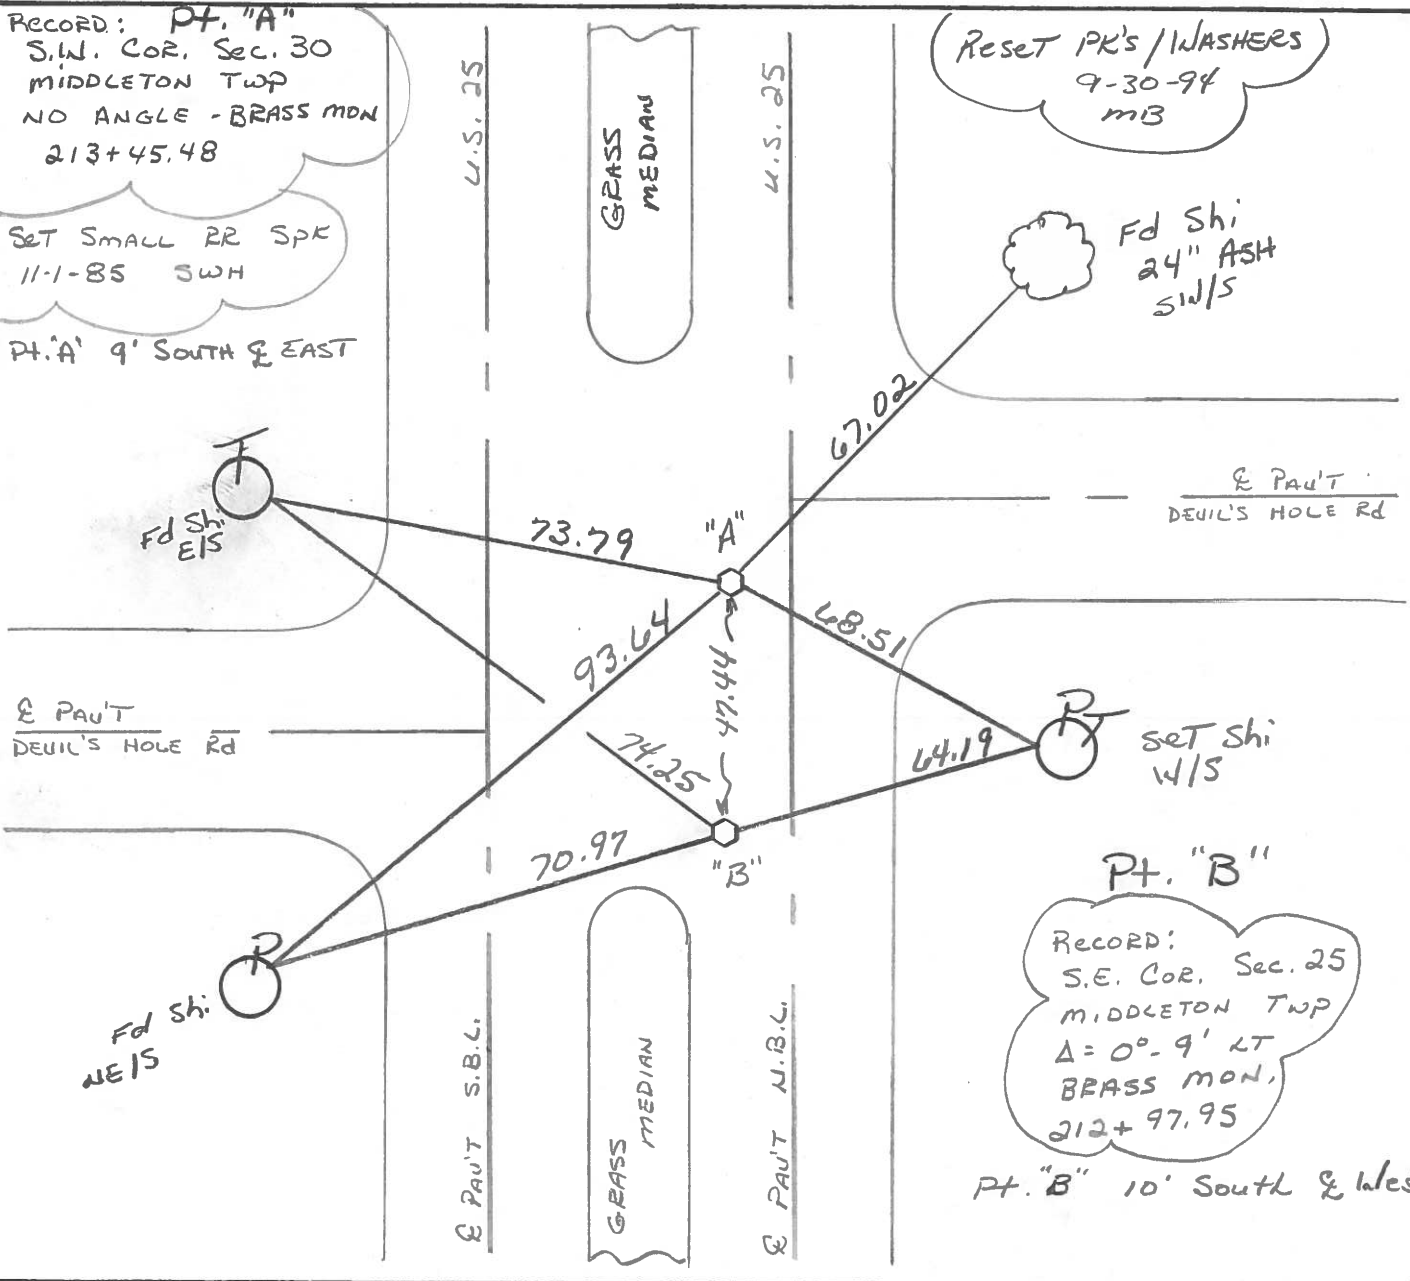 RECORD: Pt. "A"
S.W. COR. Sec. 30
MIDDLETON TWP
NO ANGLE - BRASS MON
213+45.48
SET SMALL RR SPK
11-1-85 SWH
Pt. "A" 9' SOUTH ℄ EAST
U.S. 25
GRASS
MEDIAN
U.S. 25
RESET PK'S / WASHERS
9-30-94
MB
Fd Shi
24" ASH
SW/S
67.02
T
Fd Shi
E/S
73.79
"A"
℄ PAV'T
DEVIL'S HOLE Rd
93.64
47.44
68.51
℄ PAV'T
DEVIL'S HOLE Rd
74.25
64.19
P
T
SET Shi
W/S
70.97
"B"
P
Fd Shi
NE/S
Pt. "B"
RECORD:
S.E. COR. Sec. 25
MIDDLETON TWP
Δ = 0°- 9' LT
BRASS MON.
212+97.95
Pt. "B" 10' South ℄ Wes
℄ PAV'T S.B.L.
GRASS
MEDIAN
℄ PAV'T N.B.L.